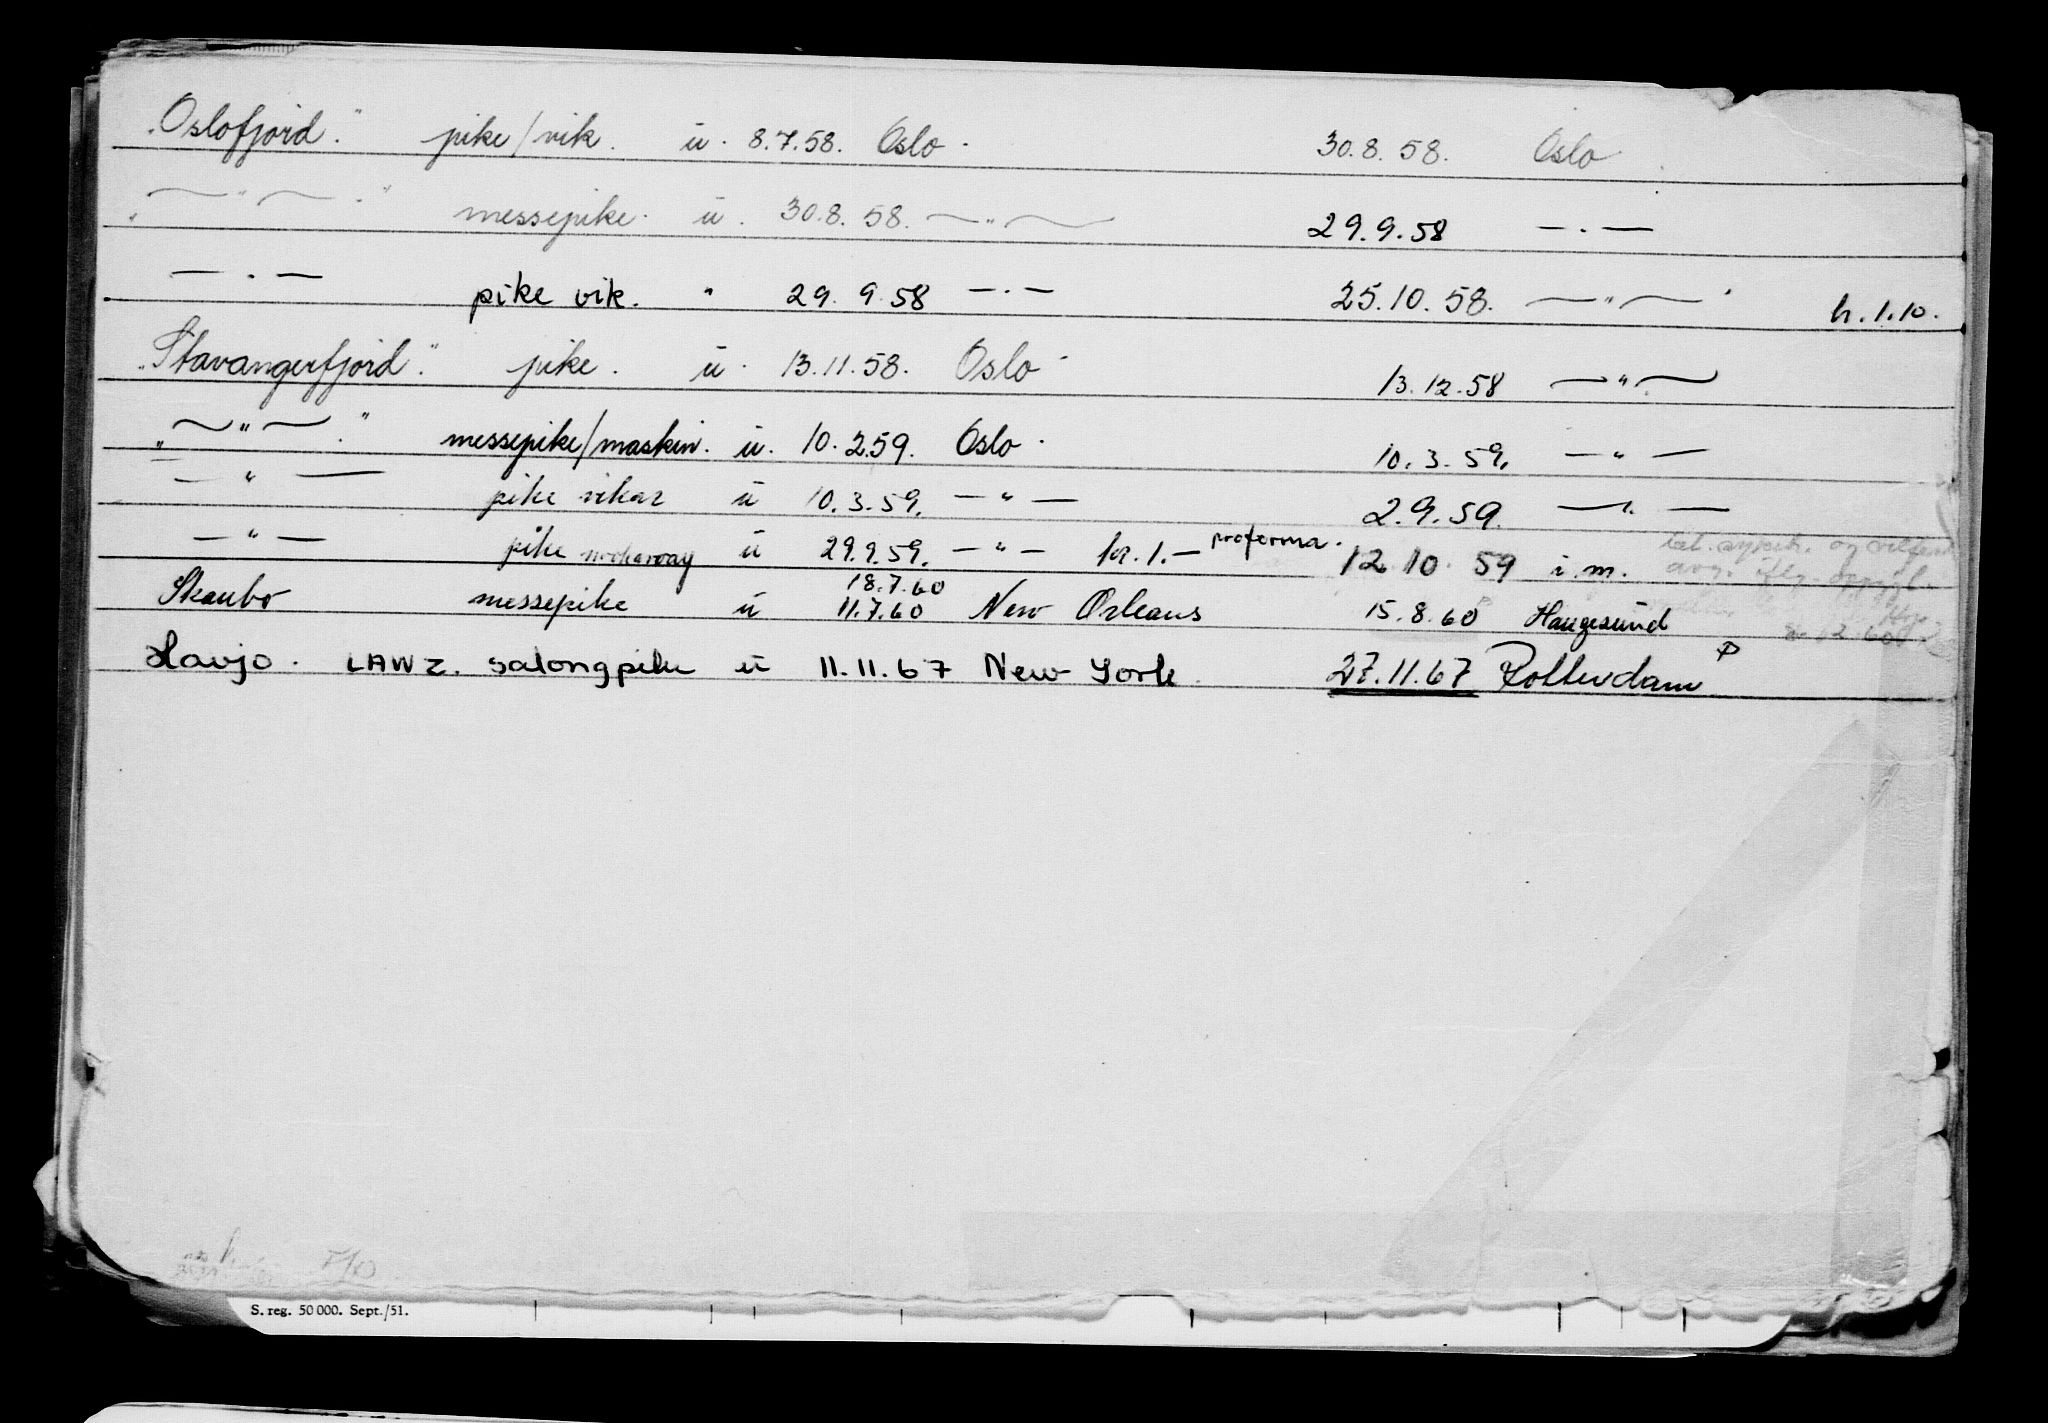 „Oslofjord.” pike/vik. ü. 8.7.58. Oslo. 30.8.58. Oslo
„—"—." messepike. ü. 30.8.58. —"— 29.9.58 —.—
—.— pike vik. " 29.9.58 —.— 25.10.58. —"— h.1.10.
„Stavangerfjord.” pike. ü. 13.11.58. Oslo 13.12.58 —"—
„—"—." messepike/maskin. ü. 10.2.59. Oslo. 10.3.59. —"—
—"— pike vikar ü 10.3.59. —"— 2.9.59. —"—
—"— pike ü 29.9.59. —"— kr. 1.— proforma. 12.10.59 i.m.
18.7.60
Skaubo messepike ü 11.7.60 New Orleans 15.8.60 Haugesund
Havjo. LAWZ. salongpike ü 11.11.67 New York 27.11.67 Rotterdam
S. reg. 50 000. Sept./51.